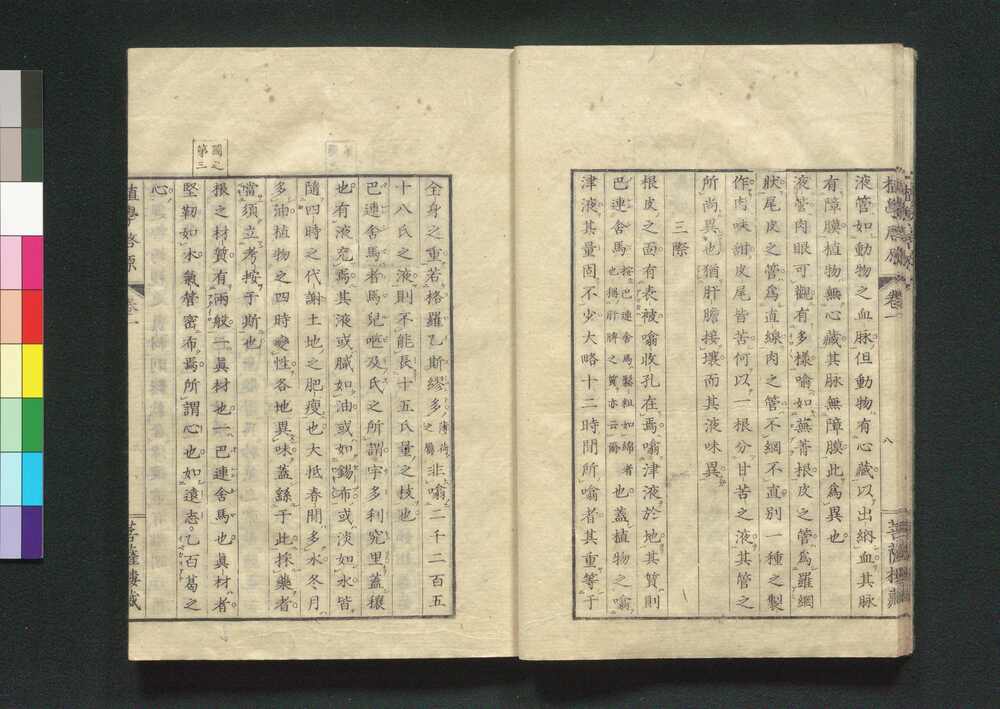 液管如動物之血脉但動物有心藏以出納血其脉
有障膜植物無心藏其脉無障膜此爲異也
液管肉眼可觀有多樣噏如蕪菁根皮之管爲羅網
狀尾皮之管爲直線肉之管不網不直別一種之製
作肉味甜皮尾皆苦何以一根分甘苦之液其管之
所尚異也猶肝膽接壤而其液味異
三際
根皮之面有表被噏收孔在焉噏津液於地其質則
巴連舍馬按巴連舍馬鬆粗如綿者也獨肝脾之質亦云爾也蓋植物之噏
津液其量固不少大略十二時間所噏者其重等于
植學啓原
卷一
八
菩薩樓藏
全身之重若格羅乙斯繆多薄荷之屬非噏二千二百五
十八氏之液則不能長十五氏量之枝也
巴連舍馬者馬兒咂及氏之所謂宇多利究里蓋穰
也有液充焉其液或膩如油或如錫布或淡如水皆
隨四時之代謝土地之肥瘦也大抵春間多水冬月
多油植物之四時變性各地異味蓋繇于此採藥者
當須立考按于斯也
圖之
第三
根之材質有兩般一眞材也一巴連舍馬也眞材者
堅勒如木氣管密布焉所謂心也如遠志乙百葛之
心
植學啓原
卷一
菩薩樓藏